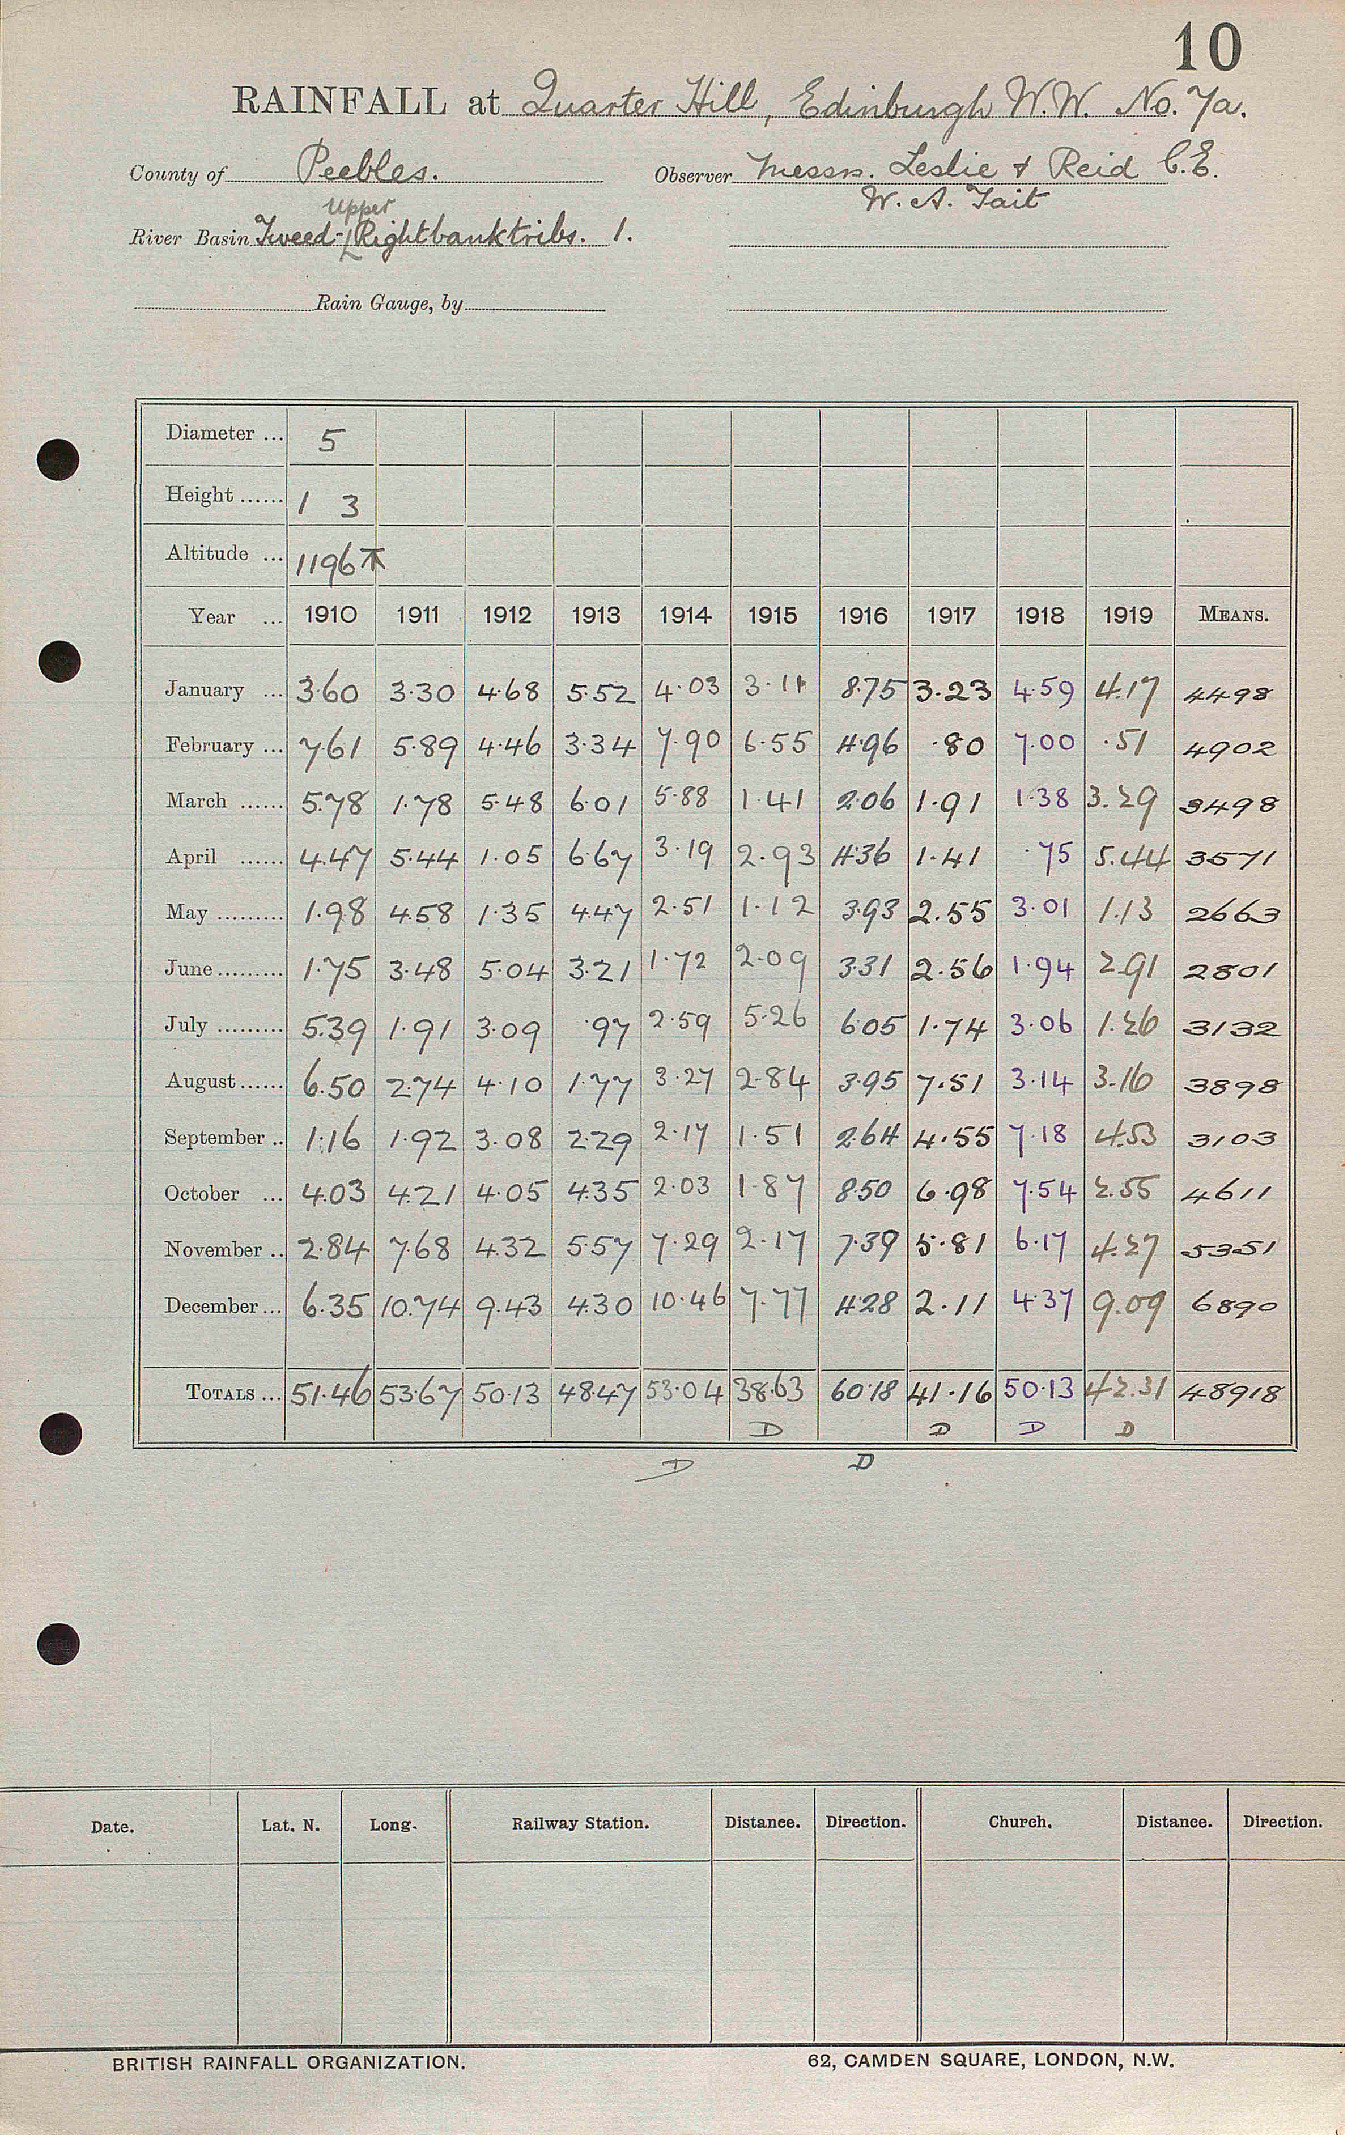 10
RAINFALL at Quarter Hill, Edinburgh W.W. No. 7a.
County of Peebles. Observer Messrs. Leslie & Reid C.E.
W. A. Tait
Upper
River Basin Tweed - Right bank tribs. 1.
Rain Gauge, by
Diameter ... 5
Height ...... 1 3
Altitude ... 1196
Year ... 1910 1911 1912 1913 1914 1915 1916 1917 1918 1919 MEANS.
January ... 3.60 3.30 4.68 5.52 4.03 3.11 8.75 3.23 4.59 4.17 4498
February ... 7.61 5.89 4.46 3.34 7.90 6.55 4.96 .80 7.00 .51 4902
March ...... 5.78 1.78 5.48 6.01 5.88 1.41 2.06 1.91 1.38 3.29 3498
April ...... 4.47 5.44 1.05 6.67 3.19 2.93 4.36 1.41 .75 5.44 3571
May ......... 1.98 4.58 1.35 4.47 2.51 1.12 3.93 2.55 3.01 1.13 2663
June ......... 1.75 3.48 5.04 3.21 1.72 2.09 3.31 2.56 1.94 2.91 2801
July ......... 5.39 1.91 3.09 .97 2.59 5.26 6.05 1.74 3.06 1.26 3132
August ...... 6.50 2.74 4.10 1.77 3.27 2.84 3.95 7.51 3.14 3.16 3898
September .. 1.16 1.92 3.08 2.29 2.17 1.51 2.64 4.55 7.18 4.53 3103
October ... 4.03 4.21 4.05 4.35 2.03 1.87 8.50 6.98 7.54 2.55 4611
November .. 2.84 7.68 4.32 5.57 7.29 2.17 7.39 5.81 6.17 4.27 5351
December ... 6.35 10.74 9.43 4.30 10.46 7.77 4.28 2.11 4.37 9.09 6890
TOTALS ... 51.46 53.67 50.13 48.47 53.04 38.63 60.18 41.16 50.13 42.31 48918
D D D D
D D
Date. Lat. N. Long. Railway Station. Distance. Direction. Church. Distance. Direction.
BRITISH RAINFALL ORGANIZATION. 62, CAMDEN SQUARE, LONDON, N.W.